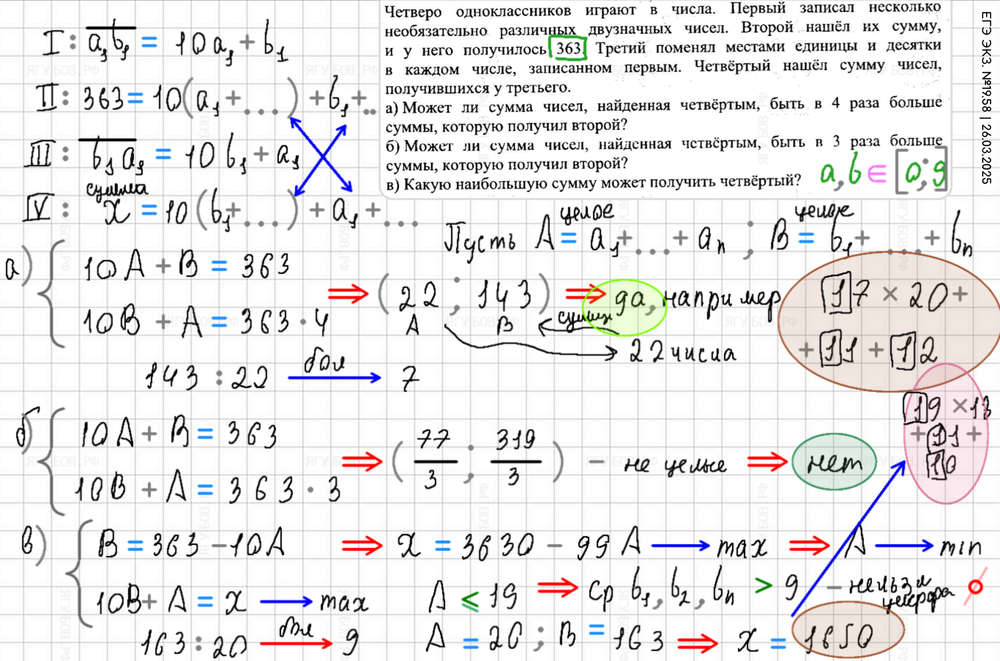 Четверо одноклассников играют в числа. Первый записал несколько
необязательно различных двузначных чисел. Второй нашёл их сумму,
и у него получилось 363. Третий поменял местами единицы и десятки
в каждом числе, записанном первым. Четвёртый нашёл сумму чисел,
получившихся у третьего.
а) Может ли сумма чисел, найденная четвёртым, быть в 4 раза больше
суммы, которую получил второй?
б) Может ли сумма чисел, найденная четвёртым, быть в 3 раза больше
суммы, которую получил второй?
в) Какую наибольшую сумму может получить четвёртый?
a, b ∈ [0; 9]
ЕГЭ ЭКЗ. №19.58 | 26.03.2025
I: a₁b₁ = 10a₁ + b₁
II: 363 = 10(a₁+...) + b₁+...
III: b₁a₁ = 10b₁ + a₁
сумма
IV: x = 10(b₁+...) + a₁+...
целое целое
Пусть A = a₁+...+aₙ ; B = b₁+...+bₙ
а) 10A + B = 363
10B + A = 363·4
⇒ (22 ; 143) ⇒ да, например 17 × 20 +
+ 11 + 12
A B
22 числа
143 : 22 → 7
б) 10A + B = 363
10B + A = 363·3
⇒ (77/3 ; 319/3) – не целые ⇒ нет
19 × 13
+ 11 +
10
в) B = 363 – 10A ⇒ x = 3630 – 99A → max ⇒ A → min
10B + A = x → max
A ≤ 19 ⇒ ср b₁, b₂, bₙ > 9 – нельзя
163 : 20 → 9
A = 20 ; B = 163 ⇒ x = 1650